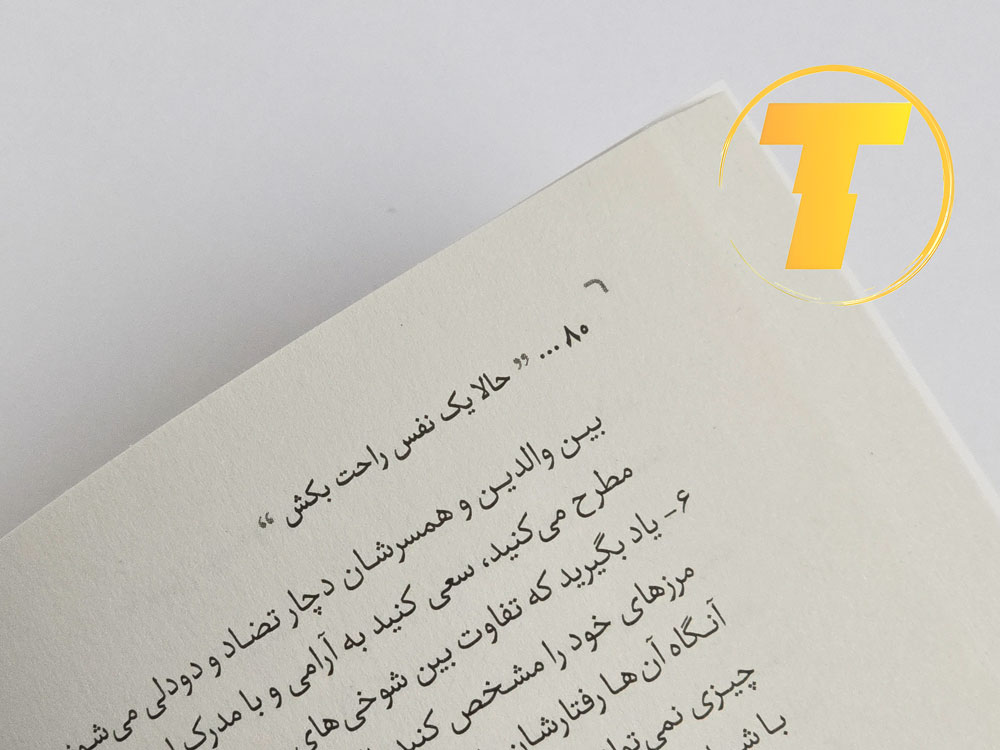 T
۸۰ ... ” حالا یک نفس راحت بکش “
بین والدین و همسرشان دچار تضاد و دودلی می‌شو
مطرح می‌کنید، سعی کنید به آرامی و با مدرک
۶- یاد بگیرید که تفاوت بین شوخی‌های
مرزهای خود را مشخص کنید
آنگاه آن‌ها رفتارشان
چیزی نمی‌توا
با ش